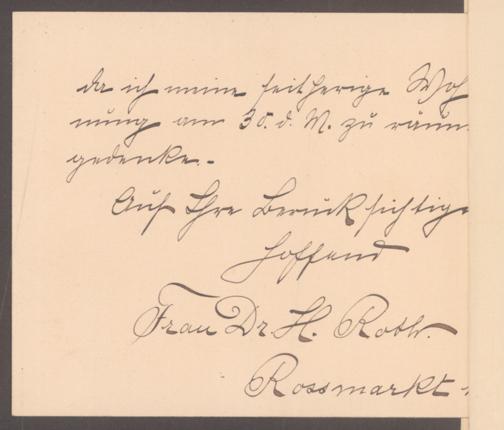 da ich meine seitherige Woh
nung am 30. d. M. zu räum
gedenke.-
Auf Ihre Berücksichtig
hoffend
Frau Dr. H. Roth.
Rossmarkt -